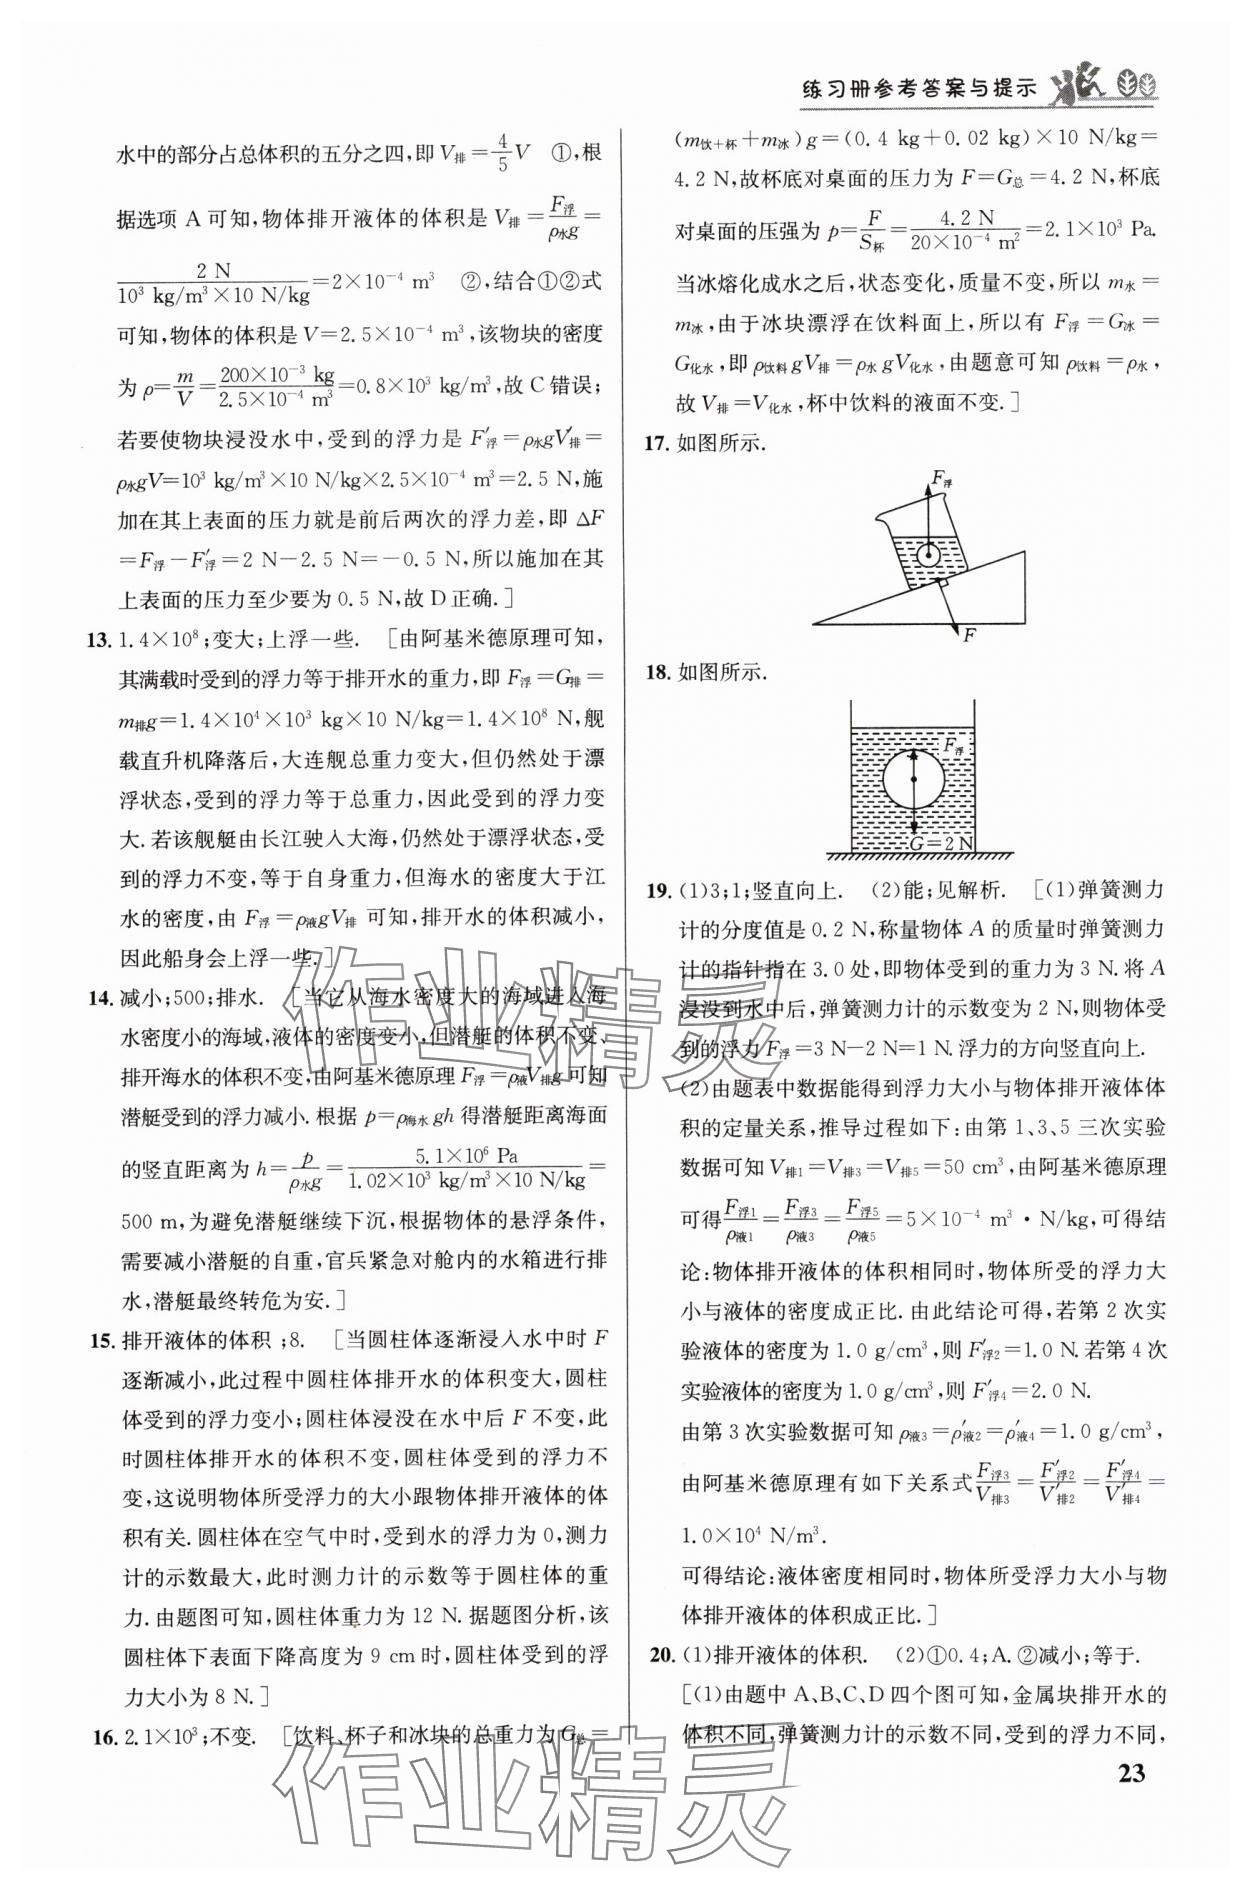 练习册参考答案与提示
水中的部分占总体积的五分之四,即 V排=4/5V ①,根
据选项 A 可知,物体排开液体的体积是 V排=F浮/ρ水g=
2 N/(10³ kg/m³×10 N/kg)=2×10⁻⁴ m³ ②,结合①②式
可知,物体的体积是 V=2.5×10⁻⁴ m³,该物块的密度
为 ρ=m/V=200×10⁻³ kg/2.5×10⁻⁴ m³=0.8×10³ kg/m³,故 C 错误;
若要使物块浸没水中,受到的浮力是 F′浮=ρ水gV′排=
ρ水gV=10³ kg/m³×10 N/kg×2.5×10⁻⁴ m³=2.5 N,施
加在其上表面的压力就是前后两次的浮力差,即 △F
=F浮−F′浮=2 N−2.5 N=−0.5 N,所以施加在其
上表面的压力至少要为 0.5 N,故 D 正确.]
13. 1.4×10⁸;变大;上浮一些. [由阿基米德原理可知,
其满载时受到的浮力等于排开水的重力,即 F浮=G排=
m排g=1.4×10⁴×10³ kg×10 N/kg=1.4×10⁸ N,舰
载直升机降落后,大连舰总重力变大,但仍然处于漂
浮状态,受到的浮力等于总重力,因此受到的浮力变
大.若该舰艇由长江驶入大海,仍然处于漂浮状态,受
到的浮力不变,等于自身重力,但海水的密度大于江
水的密度,由 F浮=ρ液gV排 可知,排开水的体积减小,
因此船身会上浮一些.]
14. 减小;500;排水. [当它从海水密度大的海域进入海
水密度小的海域,液体的密度变小,但潜艇的体积不变、
排开海水的体积不变,由阿基米德原理 F浮=ρ液V排g 可知
潜艇受到的浮力减小.根据 p=ρ海水gh 得潜艇距离海面
的竖直距离为 h=p/ρ水g=5.1×10⁶ Pa/(1.02×10³ kg/m³×10 N/kg)=
500 m,为避免潜艇继续下沉,根据物体的悬浮条件,
需要减小潜艇的自重,官兵紧急对舱内的水箱进行排
水,潜艇最终转危为安.]
15. 排开液体的体积 ;8. [当圆柱体逐渐浸入水中时 F
逐渐减小,此过程中圆柱体排开水的体积变大,圆柱
体受到的浮力变小;圆柱体浸没在水中后 F 不变,此
时圆柱体排开水的体积不变,圆柱体受到的浮力不
变,这说明物体所受浮力的大小跟物体排开液体的体
积有关.圆柱体在空气中时,受到水的浮力为 0,测力
计的示数最大,此时测力计的示数等于圆柱体的重
力.由题图可知,圆柱体重力为 12 N.据题图分析,该
圆柱体下表面下降高度为 9 cm 时,圆柱体受到的浮
力大小为 8 N.]
16. 2.1×10³;不变. [饮料、杯子和冰块的总重力为 G总=
(m饮+杯+m冰)g=(0.4 kg+0.02 kg)×10 N/kg=
4.2 N,故杯底对桌面的压力为 F=G总=4.2 N,杯底
对桌面的压强为 p=F/S杯=4.2 N/20×10⁻⁴ m²=2.1×10³ Pa.
当冰熔化成水之后,状态变化,质量不变,所以 m水=
m冰,由于冰块漂浮在饮料面上,所以有 F浮=G冰=
G化水,即 ρ饮料gV排=ρ水gV化水,由题意可知 ρ饮料=ρ水,
故 V排=V化水,杯中饮料的液面不变.]
17. 如图所示.
F浮
F
18. 如图所示.
F浮
G=2 N
19. (1)3;1;竖直向上. (2)能;见解析. [(1)弹簧测力
计的分度值是 0.2 N,称量物体 A 的质量时弹簧测力
计的指针指在 3.0 处,即物体受到的重力为 3 N.将 A
浸没到水中后,弹簧测力计的示数变为 2 N,则物体受
到的浮力 F浮=3 N−2 N=1 N.浮力的方向竖直向上.
(2)由题表中数据能得到浮力大小与物体排开液体体
积的定量关系,推导过程如下:由第 1、3、5 三次实验
数据可知 V排1=V排3=V排5=50 cm³,由阿基米德原理
可得F浮1/ρ液1=F浮3/ρ液3=F浮5/ρ液5=5×10⁻⁴ m³·N/kg,可得结
论:物体排开液体的体积相同时,物体所受的浮力大
小与液体的密度成正比.由此结论可得,若第 2 次实
验液体的密度为 1.0 g/cm³,则 F′浮2=1.0 N.若第 4 次
实验液体的密度为 1.0 g/cm³,则 F′浮4=2.0 N.
由第 3 次实验数据可知 ρ液3=ρ′液2=ρ′液4=1.0 g/cm³,
由阿基米德原理有如下关系式F浮3/V排3=F′浮2/V′排2=F′浮4/V′排4=
1.0×10⁴ N/m³.
可得结论:液体密度相同时,物体所受浮力大小与物
体排开液体的体积成正比.]
20. (1)排开液体的体积. (2)①0.4;A.②减小;等于.
[(1)由题中 A、B、C、D 四个图可知,金属块排开水的
体积不同,弹簧测力计的示数不同,受到的浮力不同,
23
作业精灵
作业精灵